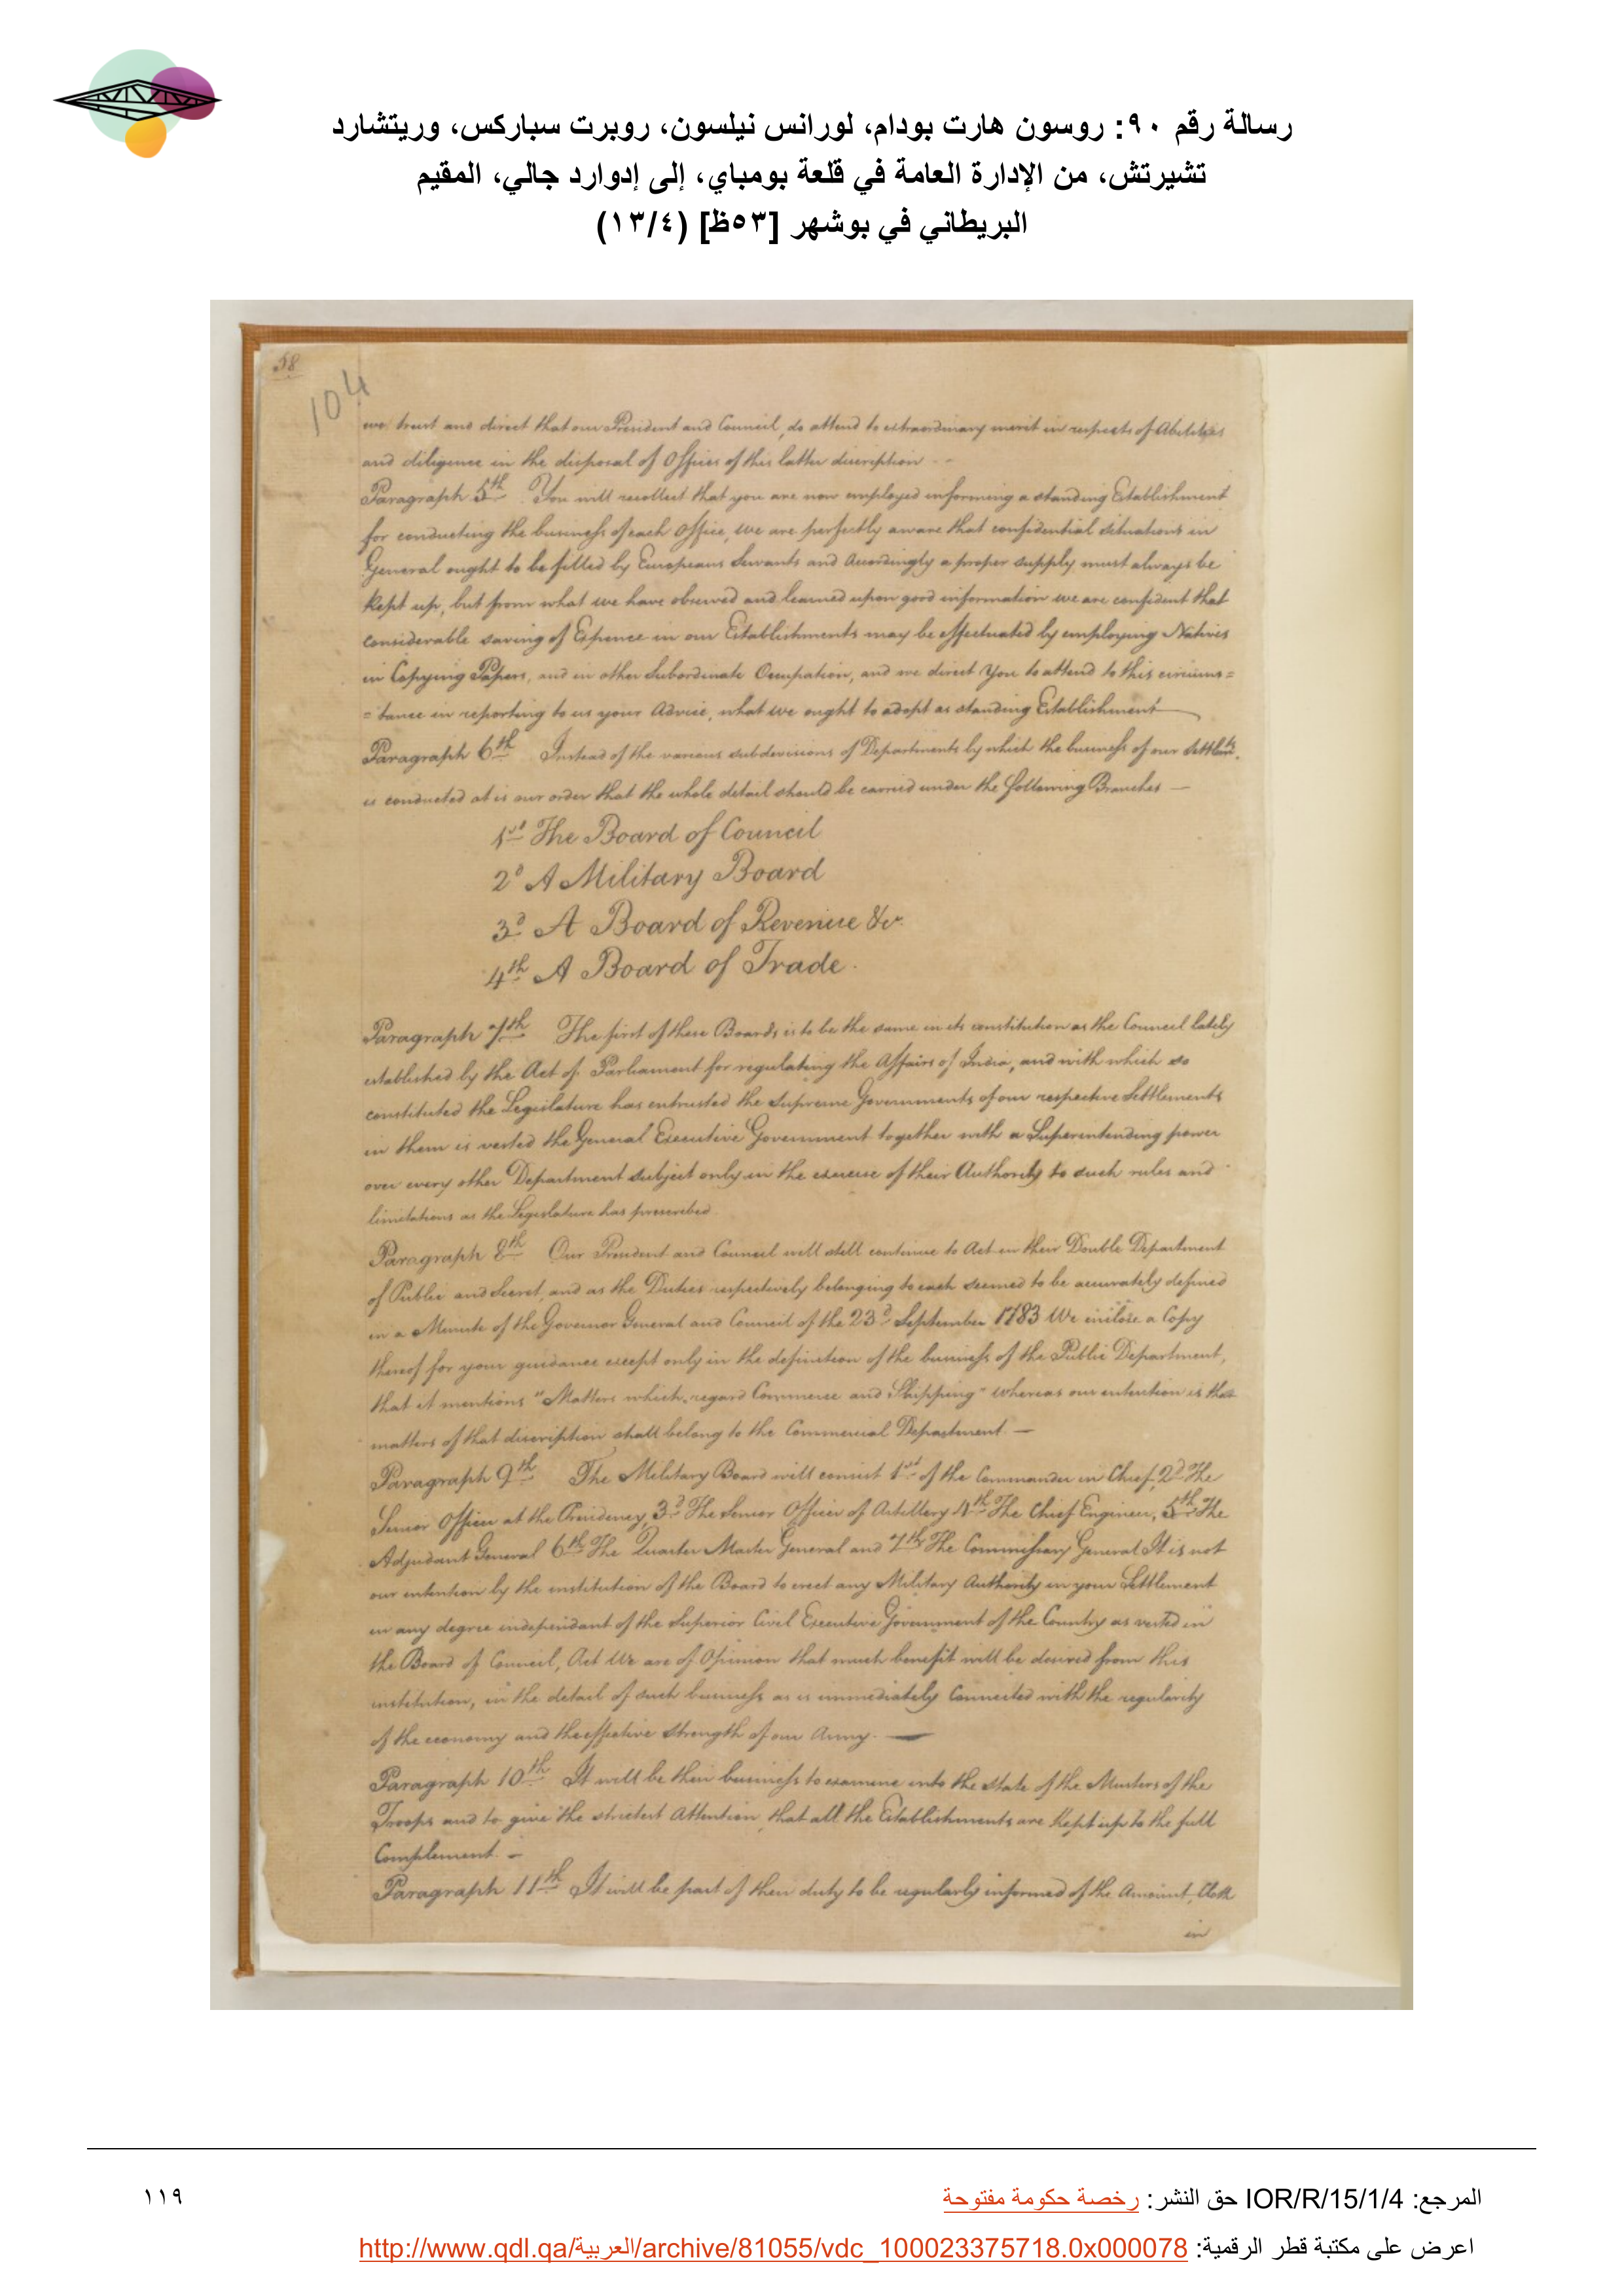 رسالة رقم ٩٠: روسون هارت بودام، لورانس نيلسون، روبرت سباركس، وريتشارد
تشيرتش، من الإدارة العامة في قلعة بومباي، إلى إدوارد جالي، المقيم
البريطاني في بوشهر [٥٣ظ] (١٣/٤)
58
104
we trust and direct that our President and Council, do attend to extraordinary merit in respects of Abilities
and diligence in the disposal of Offices of this latter discription
Paragraph 5th You will recollect that you are now employed informing a standing Establishment
for conducting the business of each Office, we are perfectly aware that confidential situations in
General ought to be filled by Europeans Servants and Accordingly a proper supply must always be
Kept up, but from what we have observed and learned upon good information we are confident that
considerable saving of Expence in our Establishments may be effectuated by employing Natives
in Copying Papers, and in other Subordinate Occupation, and we direct You to attend to this circums=
=tance in reporting to us your Advice, what we ought to adopt as standing Establishment
Paragraph 6th Instead of the various subdivisions of Departments by which the business of our Settlemts.
is conducted at is our order that the whole detail should be carried under the following Branches —
1st The Board of Council
2d A Military Board
3d A Board of Revenue &c.
4th A Board of Trade.
Paragraph 7th The first of these Boards is to be the same in its constitution as the Council lately
established by the Act of Parliament for regulating the Affairs of India, and with which so
constituted the Legislature has entrusted the Supreme Governments of our respective Settlements
in them is vested the General Executive Government together with a Superintending power
over every other Department subject only in the exercise of their Authority to such rules and
limitations as the Legislature has prescribed
Paragraph 8th Our President and Council will still continue to Act in their Double Department
of Public and Secret, and as the Duties respectively belonging to each seemed to be accurately defined
in a Minute of the Governor General and Council of the 23d September 1783 We inclose a Copy
thereof for your guidance except only in the definition of the business of the Public Department,
that it mentions "Matters which regard Commerce and Shipping" whereas our intention is that
matters of that discription shall belong to the Commercial Department —
Paragraph 9th The Military Board will consist 1st of the Commander in Chief, 2d The
Senior Officer at the Presidency, 3d The Senior Officer of Artillery 4th The Chief Engineer, 5th The
Adjudant General 6th The Quarter Master General and 7th The Commissary General It is not
our intention by the institution of the Board to erect any Military Authority in your Settlement
in any degree independant of the Superior Civil Executive Government of the Country as vested in
the Board of Council, Act We are of Opinion that much benefit will be desired from this
institution, in the detail of such business as is immediately Connected with the regularity
of the economy and the effective strength of our Army. —
Paragraph 10th It will be their business to examine into the state of the Musters of the
Troops and to give the strictest Attention, that all the Establishments are Kept up to the full
Complement. —
Paragraph 11th It will be part of their duty to be regularly informed of the Amount, both
in
المرجع: IOR/R/15/1/4 حق النشر: رخصة حكومة مفتوحة
١١٩
اعرض على مكتبة قطر الرقمية: http://www.qdl.qa/العربية/archive/81055/vdc_100023375718.0x000078